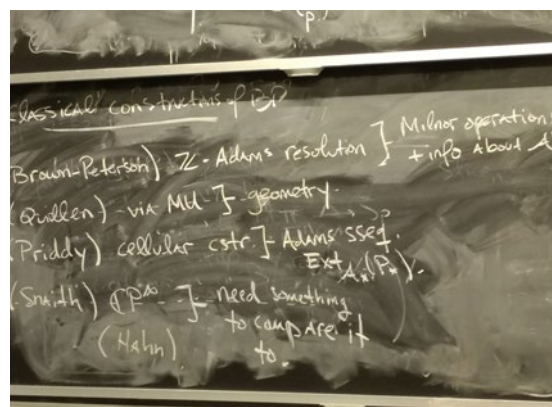 Classical constructions of BP
Brown-Peterson) Z-Adams resolution } Milnor operations
+ info About A
(Quillen) - via MU } - geometry.
(Priddy) cellular cstr. } - Adams sseq.
Ext A* (P*).
(Snaith) CP∞ - } - need something
to compare it
(Hahn) to.